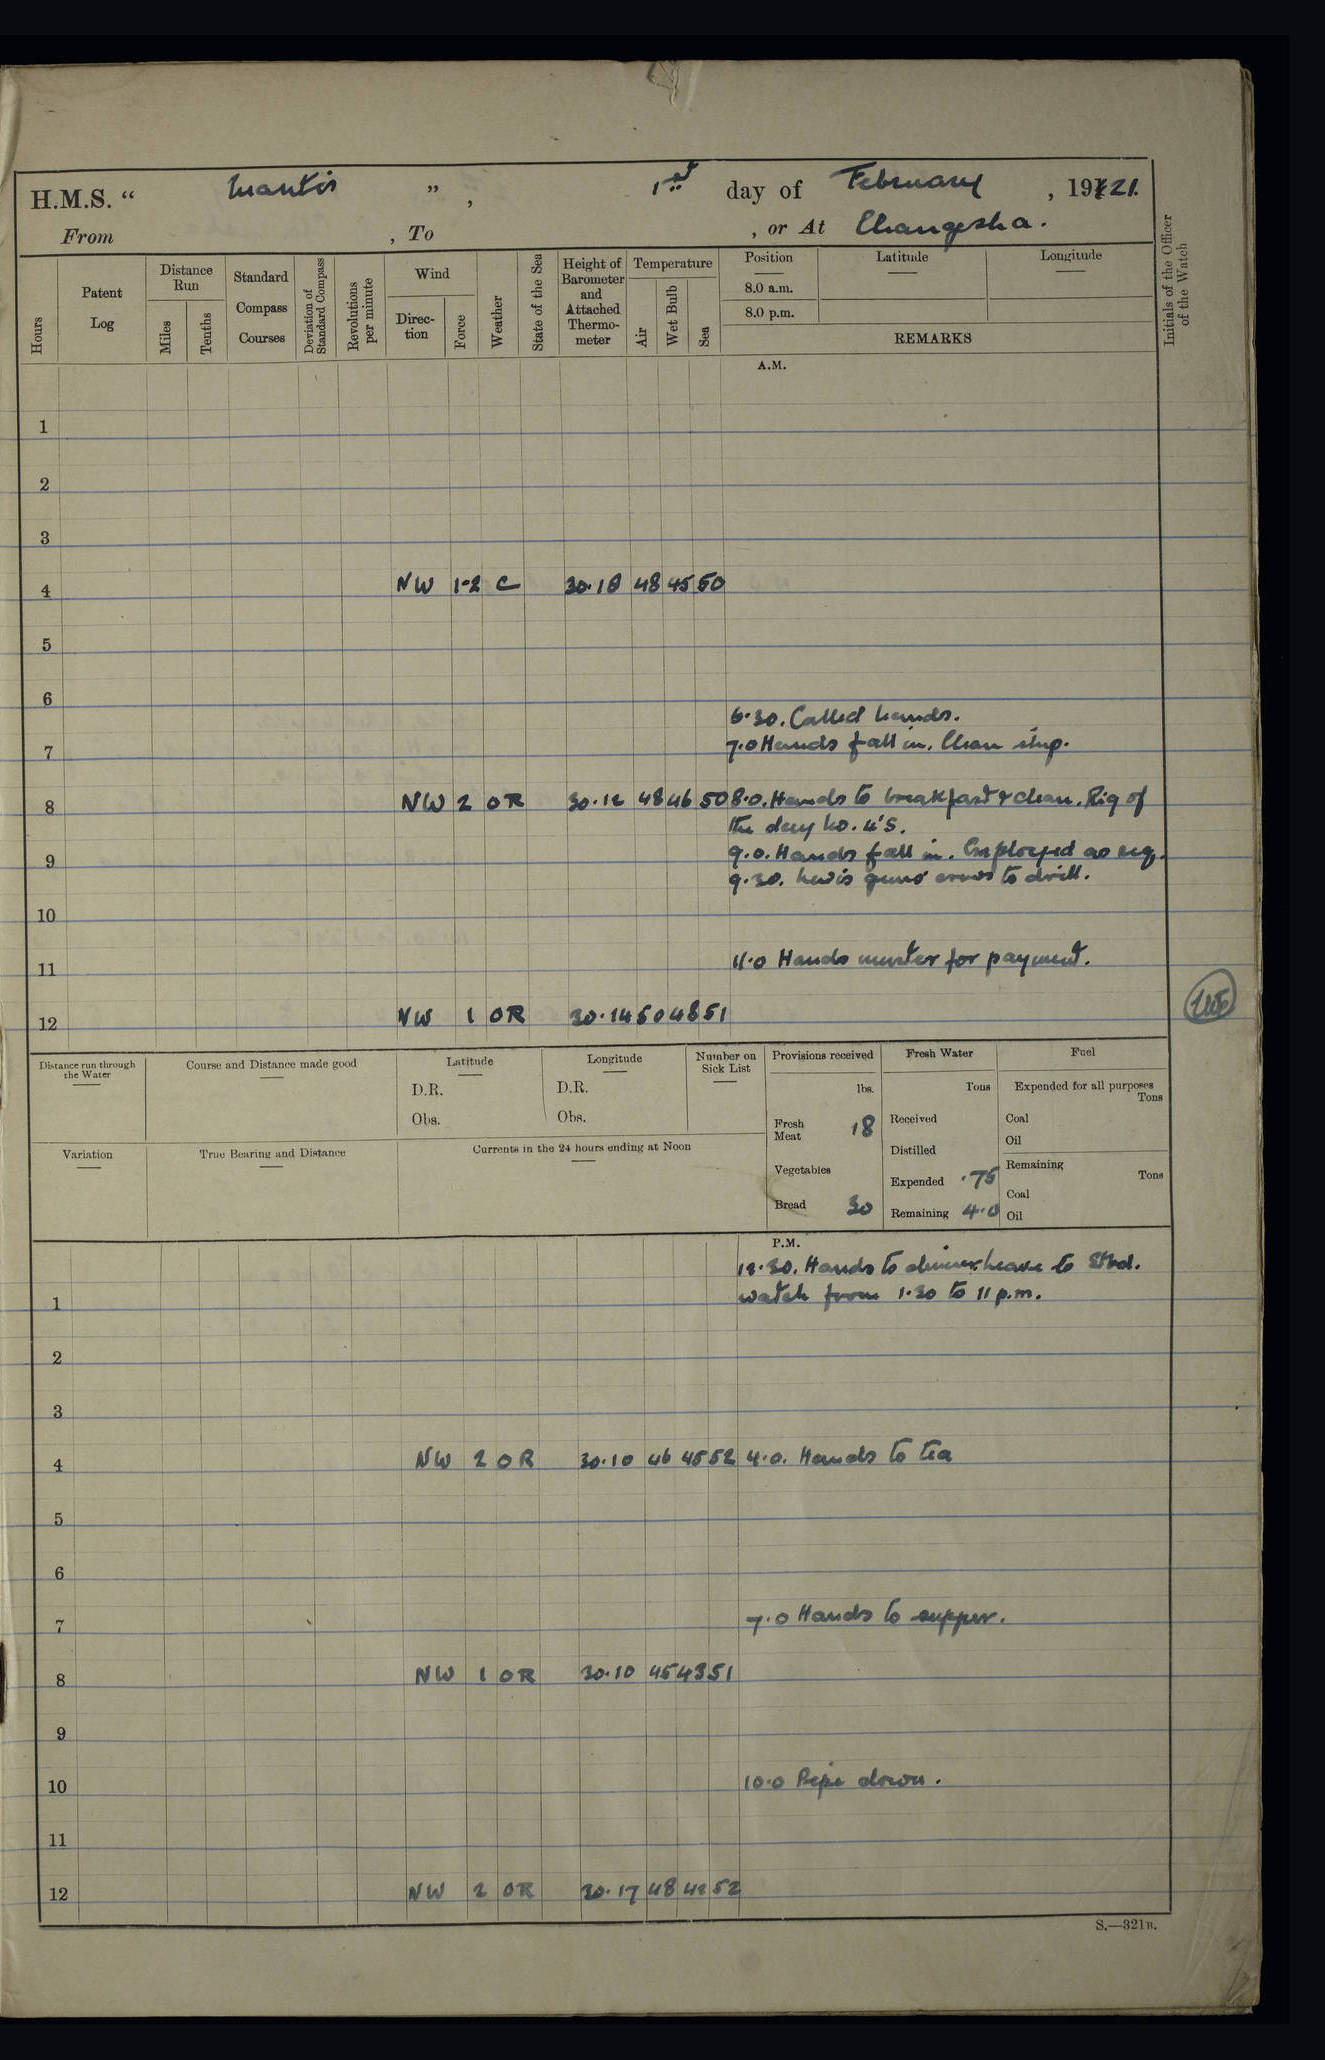 H.M.S. “ Mantis ” , 1st day of February , 1921.
From , To , or At Changesha.
Hours
Patent Log
Distance Run
Miles
Tenths
Standard Compass Courses
Deviation of Standard Compass
Revolutions per minute
Wind
Direction
Force
Weather
State of the Sea
Height of Barometer and Attached Thermometer
Temperature
Air
Wet Bulb
Sea
Position
8.0 a.m.
8.0 p.m.
Latitude
Longitude
REMARKS
Initials of the Officer of the Watch
A.M.
1
2
3
4 NW 1-2 C 30.18 48 45 50
5
6
6.30. Called hands.
7 7.0 Hands fall in. Clean ship.
8 NW 2 OR 30.12 48 46 50 8.0. Hands to breakfast & clean. Rig of
the day No. 4's.
9 9.0. Hands fall in. Employed as req.
9.30. Lewis guns crews to drill.
10
11 11.0 Hands muster for payment.
12 NW 1 OR 30.14 50 48 51
Distance run through the Water
Course and Distance made good
Latitude
D.R.
Obs.
Longitude
D.R.
Obs.
Number on Sick List
Provisions received
lbs.
Fresh Meat 18
Vegetables
Bread 30
Fresh Water
Tons
Received
Distilled
Expended .75
Remaining 4.0
Fuel
Expended for all purposes
Tons
Coal
Oil
Remaining
Tons
Coal
Oil
Variation
True Bearing and Distance
Currents in the 24 hours ending at Noon
P.M.
12.30. Hands to dinner. Leave to Stbd.
1 watch from 1.30 to 11 p.m.
2
3
4 NW 2 OR 30.10 46 45 52 4.0. Hands to tea
5
6
7 7.0 Hands to supper.
8 NW 1 OR 30.10 45 43 51
9
10 10.0 Pipe down.
11
12 NW 2 OR 30.17 48 42 52
S.—321B.